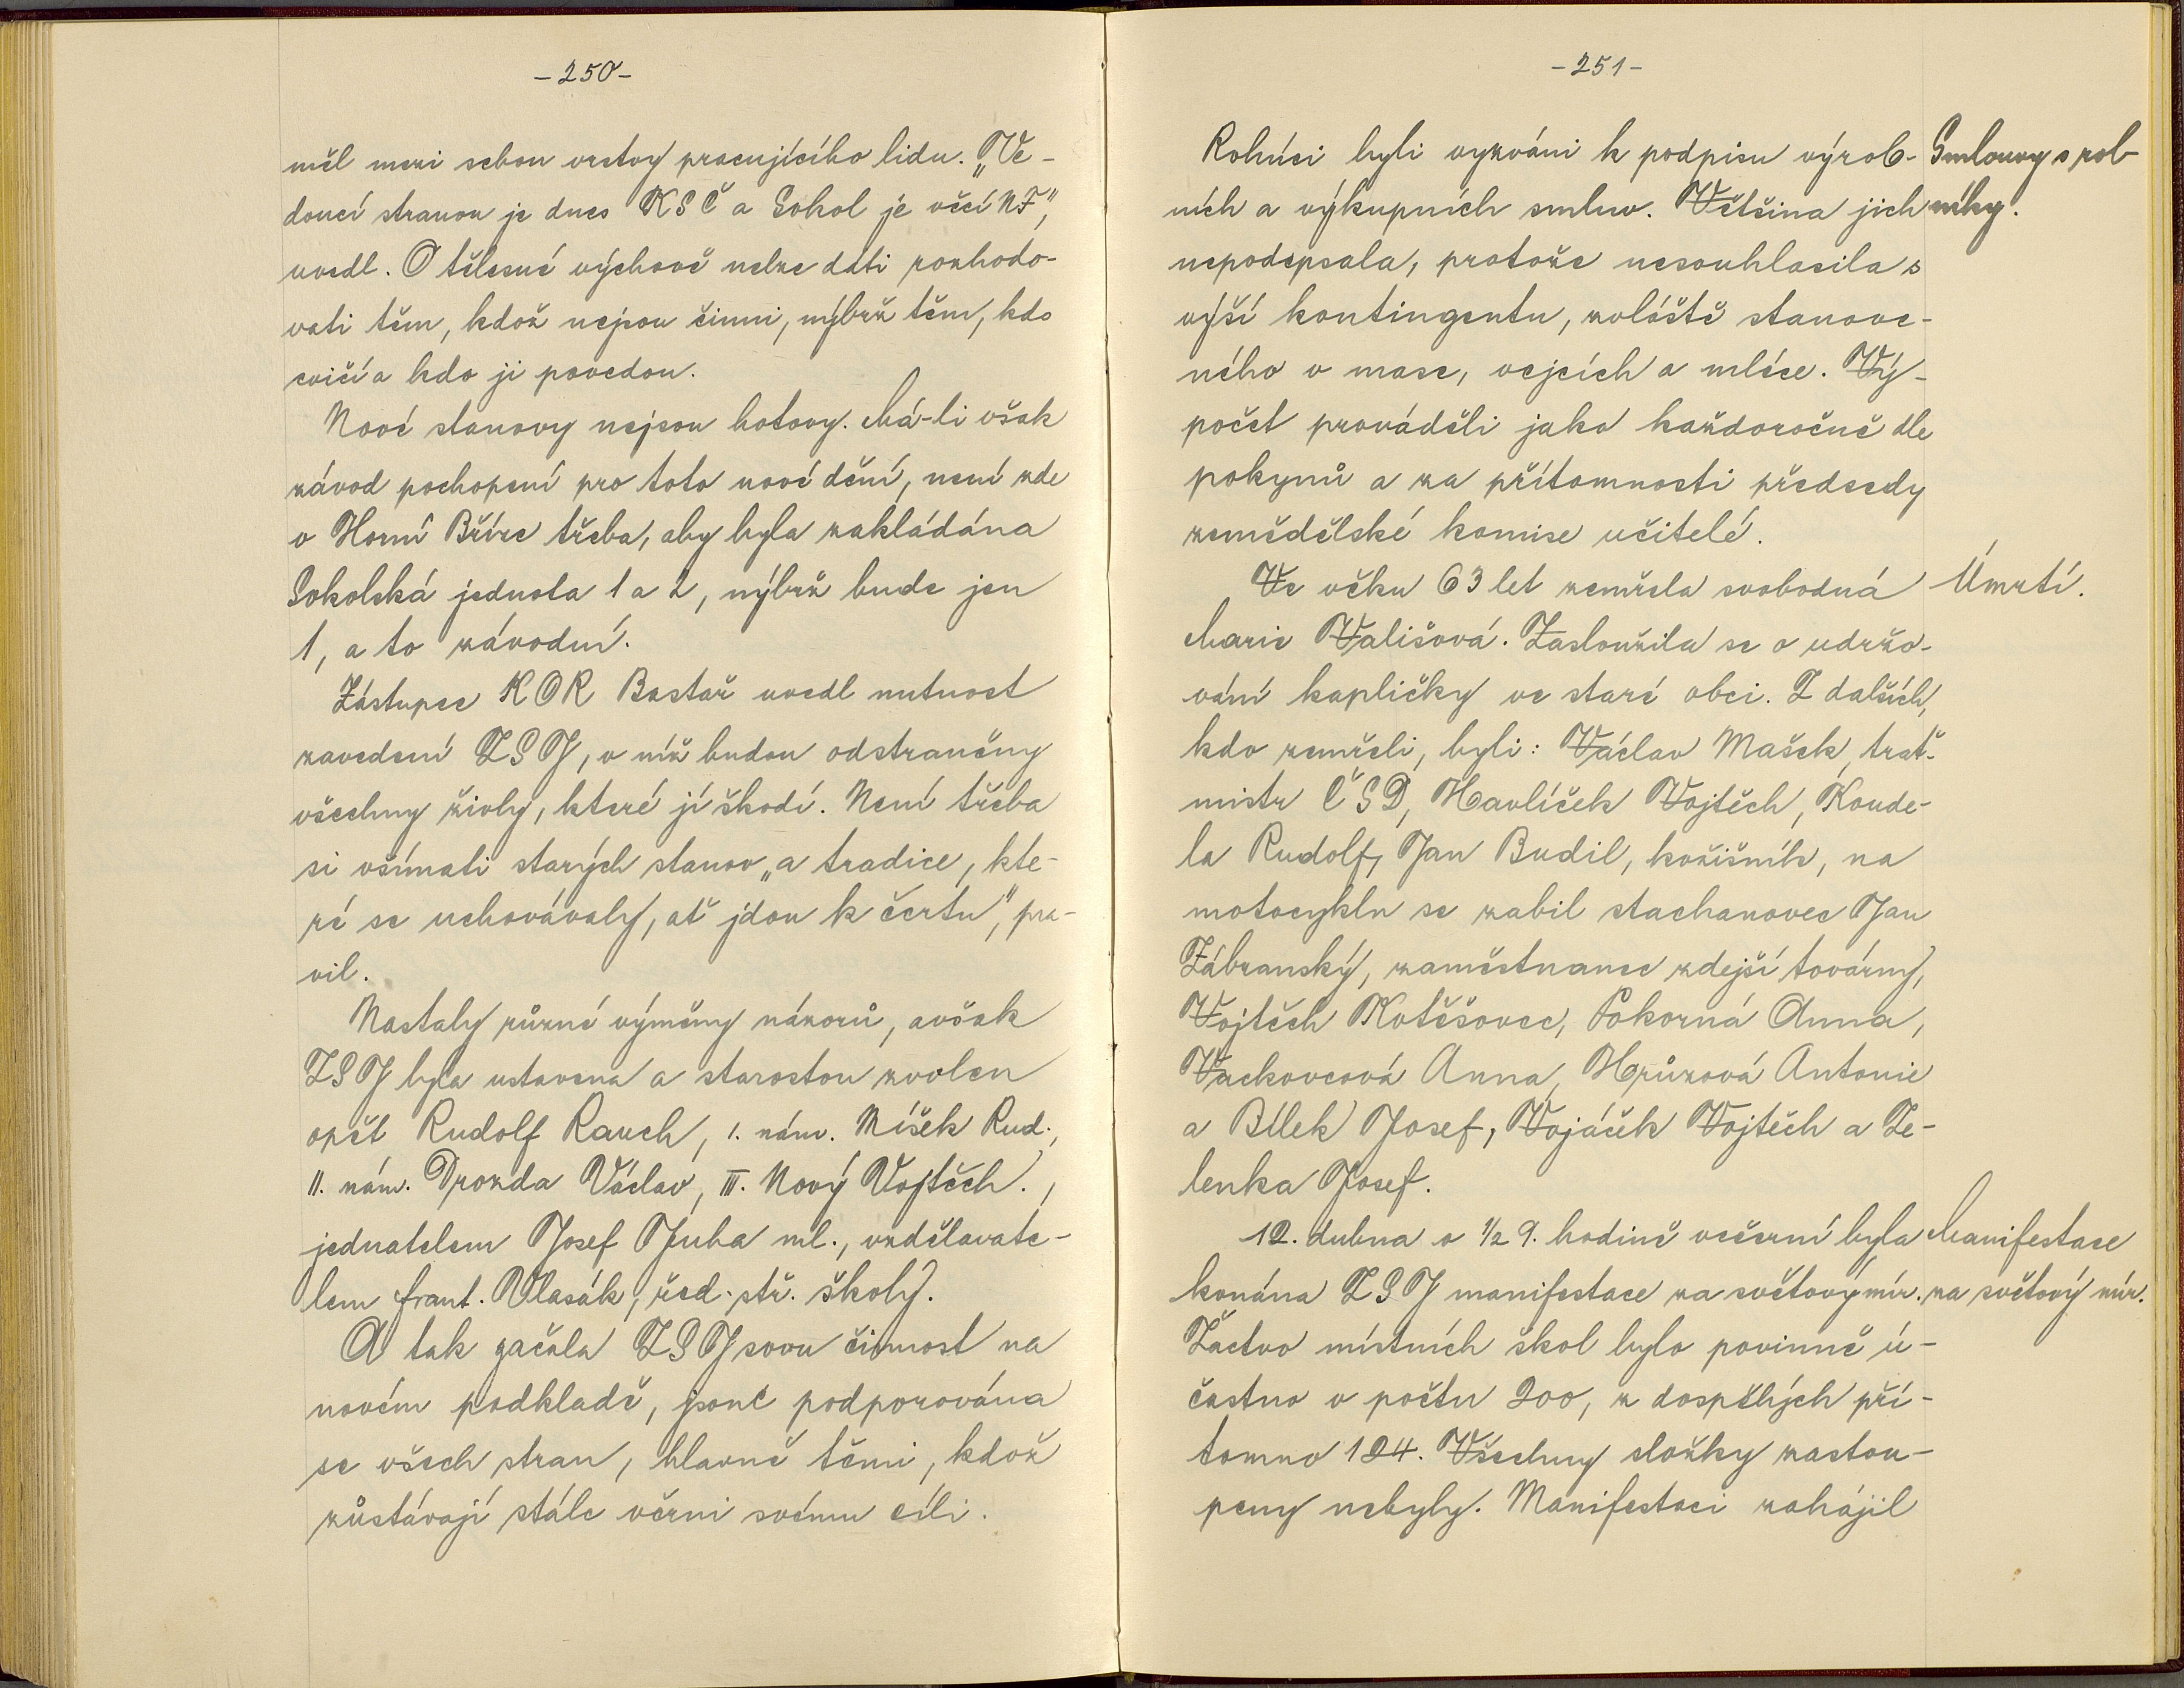 -250-
měl mezi sebou vrstvy pracujícího lidu. „Ve-
doucí stranou je dnes KSČ a Sokol je věcí NF“,
uvedl. O tělesné výchově nelze dáti rozhodo-
vati těm, kdož nejsou činni, nýbrž těm, kdo
cvičí a kdo ji povedou.
Nové stanovy nejsou hotovy. Má-li však
závod pochopení pro toto nové dění, není zde
v Horní Bříze třeba, aby byla zakládána
Sokolská jednota 1 a 2, nýbrž bude jen
1, a to závodní.
Zástupce KOR Bastař uvedl nutnost
zavedení ZSJ, v níž budou odstraněny
všechny živly, které jí škodí. Není třeba
si všímati starých stanov „a tradice, kte-
ré se uchovávaly, ať jdou k čertu“, pra-
vil.
Nastaly různé výměny názorů, avšak
ZSJ byla ustavena a starostou zvolen
opět Rudolf Rauch, 1. nám. Míšek Rud.,
II. nám. Drozda Václav, III. Nový Vojtěch.,
jednatelem Josef Juha ml., vzdělavate-
lem Frant. Vlasák, řed. stř. školy.
A tak začala ZSJ svou činnost na
novém podkladě, jsouc podporována
se všech stran, hlavně těmi, kdož
zůstávají stále věrni svému cíli.
-251-
Rolníci byli vyzváni k podpisu výrob-
ních a výkupních smluv. Většina jich
nepodepsala, protože nesouhlasila s
výší kontingentu, zvláště stanove-
ného v mase, vejcích a mléce. Vý-
počet prováděli jako každoročně dle
pokynů a za přítomnosti předsedy
zemědělské komise učitelé.
Smlouvy s rol-
níky.
Ve věku 63 let zemřela svobodná
Marie Vališová. Zasloužila se o udržo-
vání kapličky ve staré obci. Z dalších,
kdo zemřeli, byli: Václav Mašek, trať.
mistr ČSD, Havlíček Vojtěch, Koude-
la Rudolf, Jan Budil, kožišník, na
motocyklu se zabil stachanovec Jan
Zábranský, zaměstnanec zdejší továrny,
Vojtěch Kotěšovec, Pokorná Anna,
Vackovcová Anna, Hrůzová Antonie
a Bílek Josef, Vojáček Vojtěch a Ze-
lenka Josef.
Úmrtí.
12. dubna o 1/2 9. hodině večerní byla
konána ZSJ manifestace za světový mír.
Žactvo místních škol bylo povinně ú-
častno v počtu 200, z dospělých pří-
tomno 124. Všechny složky zastou-
peny nebyly. Manifestaci zahájil
Manifestace
za světový mír.